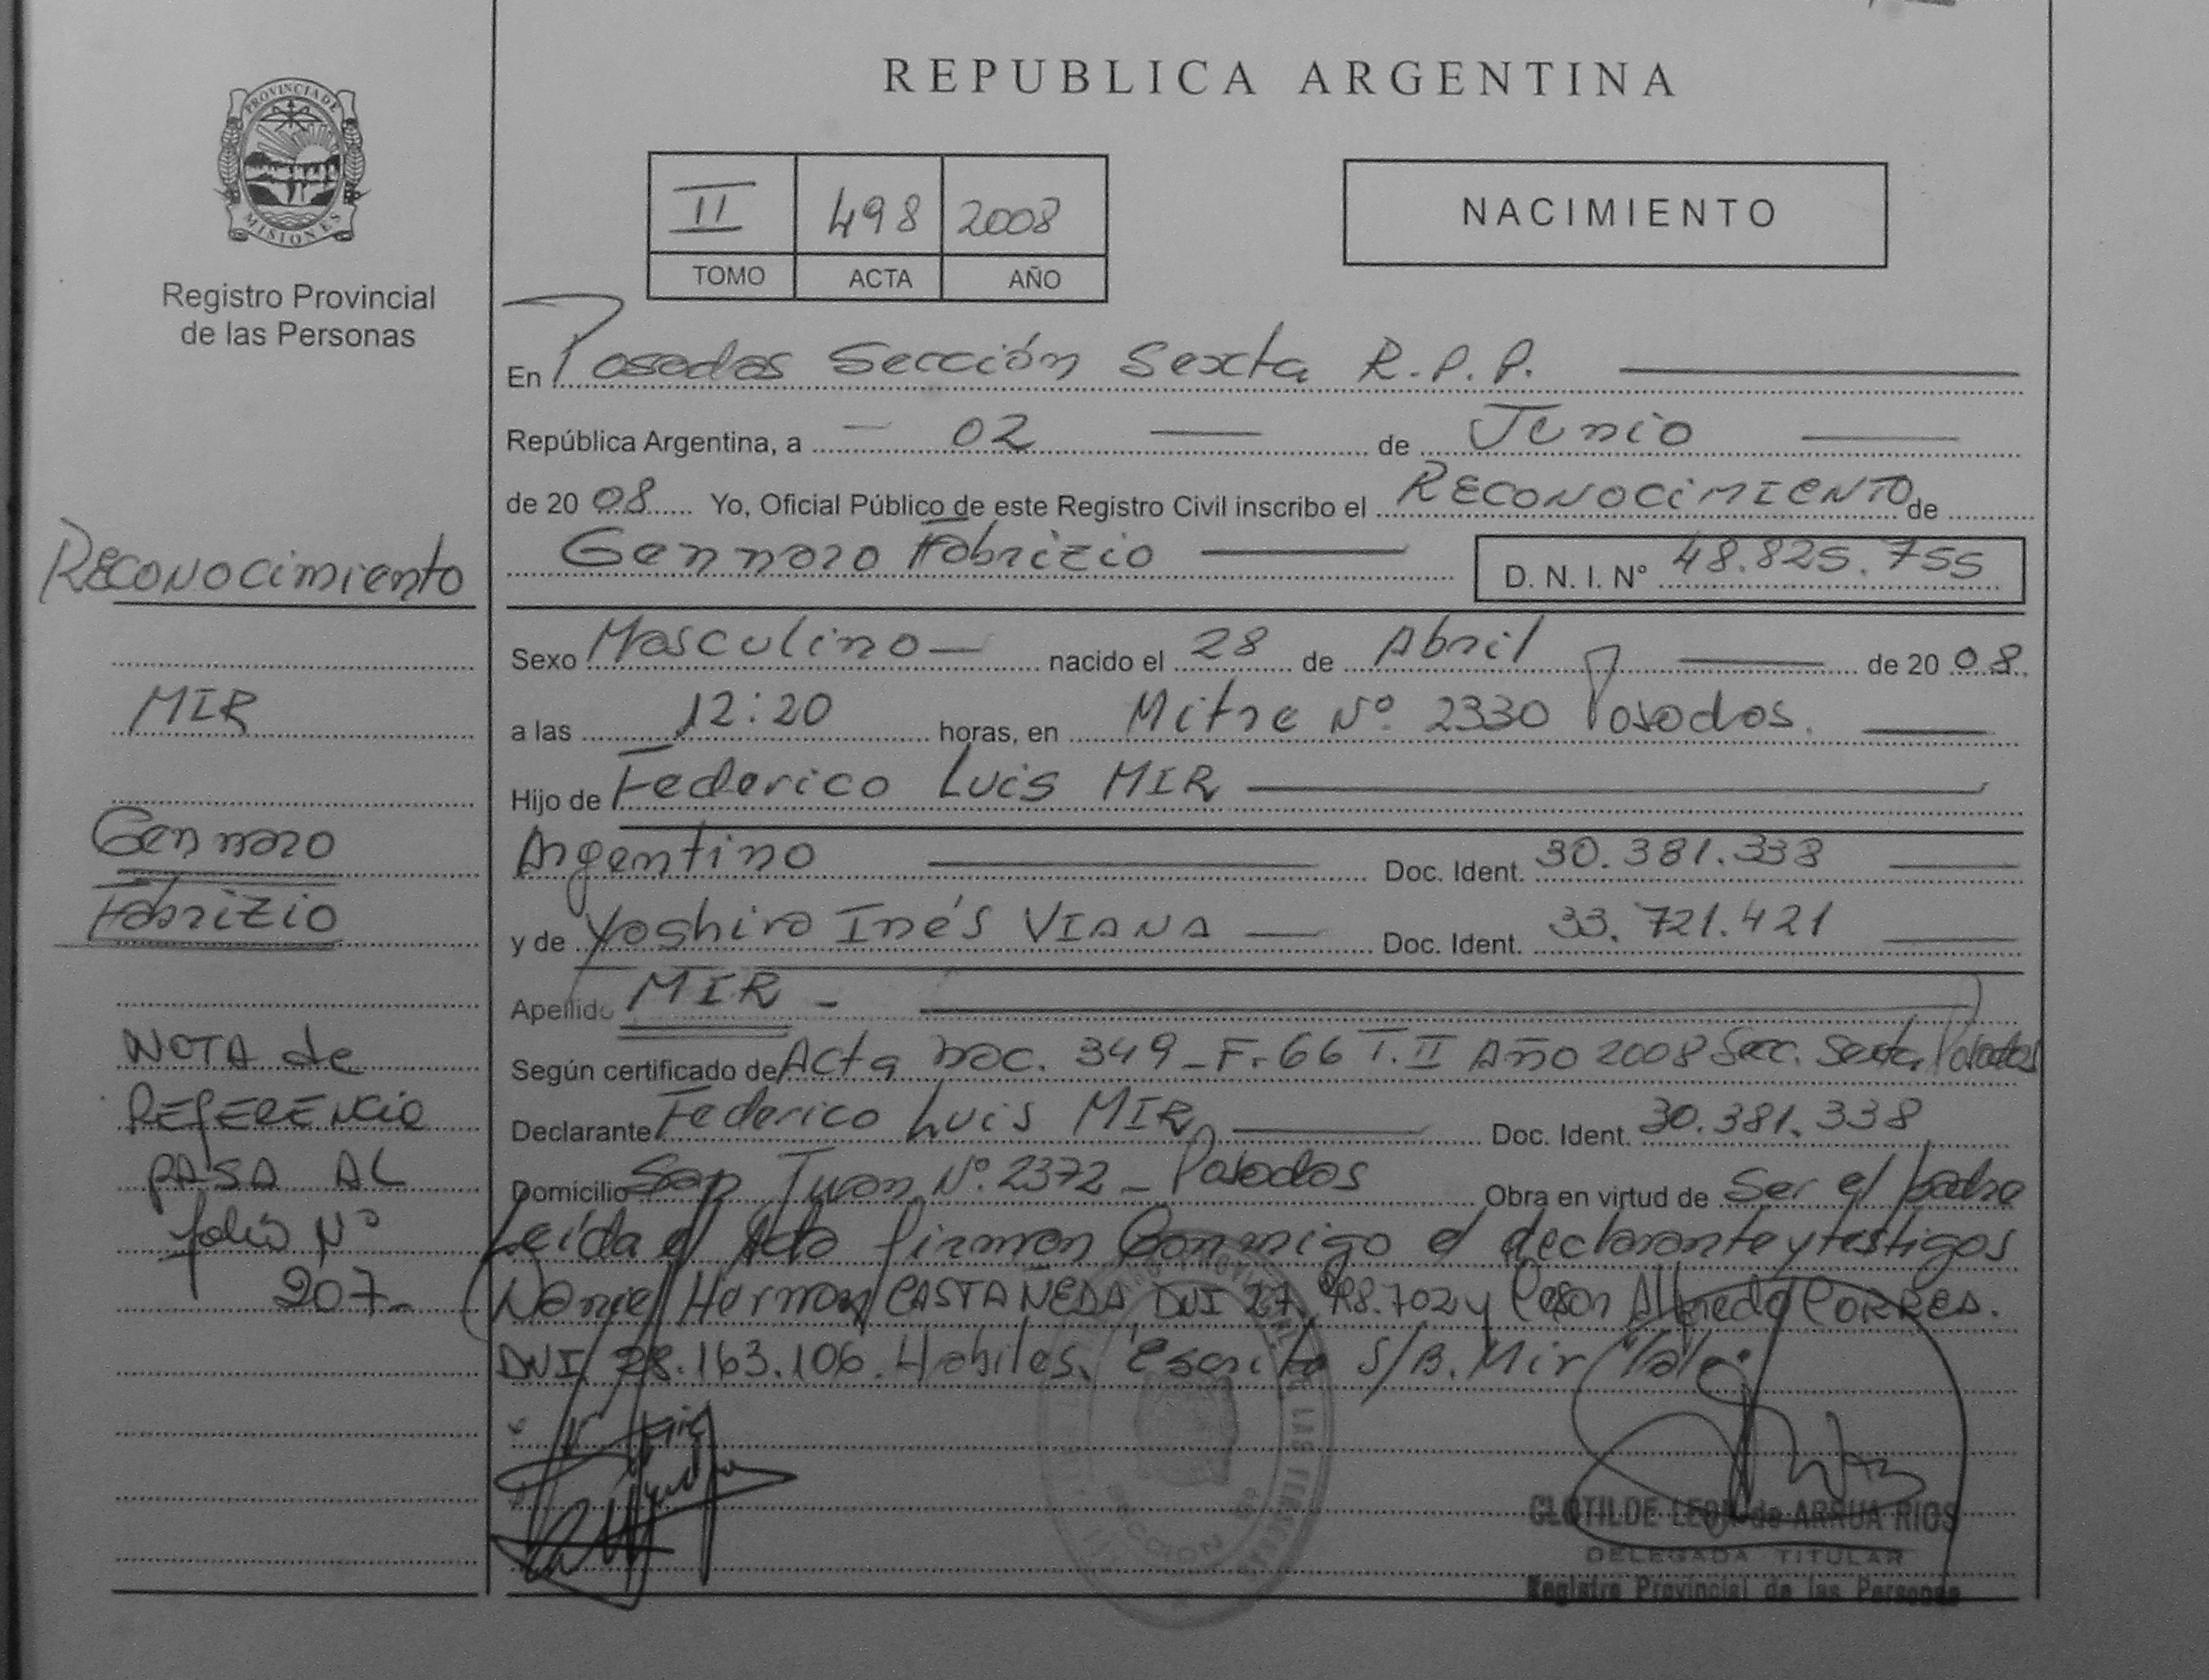 REPUBLICA ARGENTINA
PROVINCIA DE MISIONES
Registro Provincial
de las Personas
II 498 2008
TOMO ACTA AÑO
NACIMIENTO
En Posadas Sección Sexta R.P.P.
República Argentina, a 02 de Junio
de 20 08 Yo, Oficial Público de este Registro Civil inscribo el RECONOCIMIENTO de
Gennaro Fabrizio D. N. I. Nº 48.825.755
Sexo Masculino nacido el 28 de Abril de 20 08
a las 12:20 horas, en Mitre Nº 2330 Posadas.
Hijo de Federico Luis MIR
Argentino Doc. Ident. 30.381.338
y de Yoshira Inés VIANA Doc. Ident. 33.721.421
Apellido MIR -
Según certificado de Acta nac. 349 - F. 66 T. II Año 2008 Secc. Sexta Posadas
Declarante Federico Luis MIR Doc. Ident. 30.381.338
Domicilio San Juan Nº 2372 - Posadas Obra en virtud de Ser el padre
Leída el Acta firman Conmigo el declarante y testigos
Hernan CASTAÑEDA DNI 27. 8.702 y Alfredo
DNI 28.163.106. Habiles. Escrito S/B. Mir
RECONOCIMIENTO
MIR
Gennaro
Fabrizio
NOTA de
REFERENCIA
PASA AL
folio Nº
207-
CLOTILDE LEON de ARRUA RIOS
DELEGADA TITULAR
Registro Provincial de las Personas